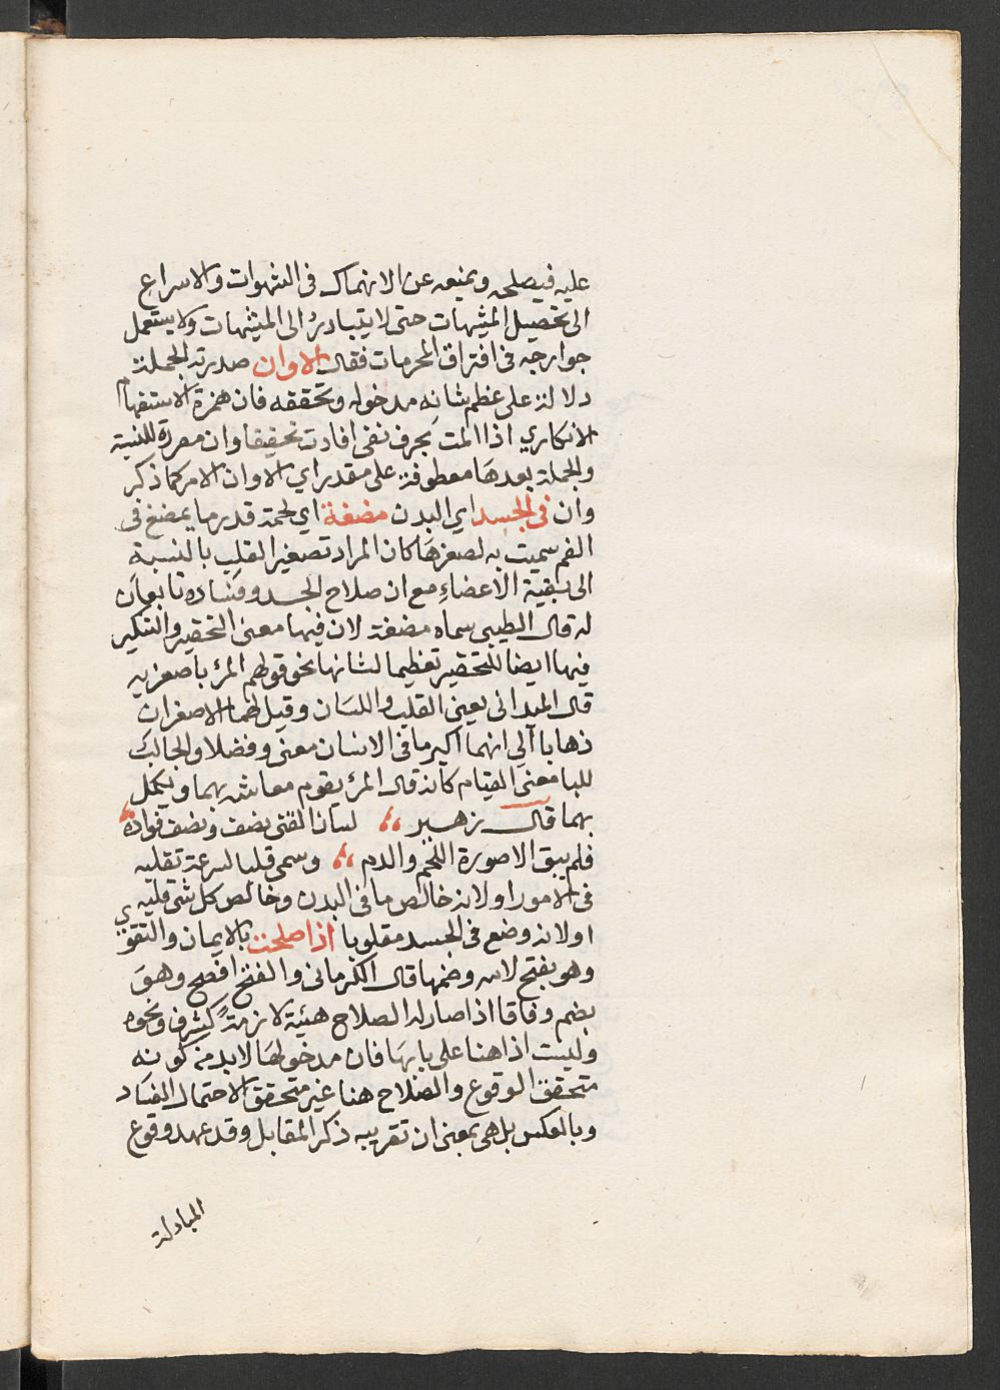 عليه فيصلحه ويمنعه عن الانهماك في الشهوات والاسراع
الى تحصيل المشبهات حتى لا يتبادر الى المشبهات ولا يستعمل
جوارحه في اقتراف المحرمات فقال الا وان صدرت الجملة
دلالة على عظم شانه مدخوله وتحققه فان همزة الاستفهام
الانكاري اذا المت بحرف نفي افادت تحقيقا وان مقررة للنسبة
والجملة بعدها معطوفة على مقدر اي الا وان الامر كما ذكر
وان في الجسد اي البدن مضغة اي لحمة قدر ما يمضغ في
الفم سميت به لصغرها كان المراد تصغير القلب بالنسبة
الى بقية الاعضاء مع ان صلاح الجسد وفساده تابعان
له قال الطيبي سماه مضغة لان فيها معنى التحقير والتنكير
فيها ايضا للتحقير تعظيما لشانها نحو قولهم المرء باصغريه
قال الميداني يعني القلب واللسان وقيل لهما الاصغران
ذهابا الى انهما اكبر ما في الانسان معنى وفضلا والجالب
للبا معنى القيام كانه قال المرء يقوم معاشه بهما ويكمل
بهما قال زهير لسان الفتى نصف ونصف فواده
فلم يبق الا صورة اللحم والدم وسمي قلبا لسرعة تقلبه
في الامور او لانه خالص ما في البدن وخالص كل شي قلبه
او لانه وضع في الجسد مقلوبا اذا صلحت بالايمان والتقوى
وهو بفتح لامه وضمها قال الكرماني والفتح افصح وهو
بضم وفاقا اذا صار له الصلاح هيئة لازمة كشرف ونحوه
وليست اذا هنا على بابها فان مدخولها لا بد من كونه
متحقق الوقوع والصلاح هنا غير متحقق لاحتمال الفساد
وبالعكس بل هي بمعنى ان تقريبه ذكر المقابل وقد عهد وقوع
المبادلة